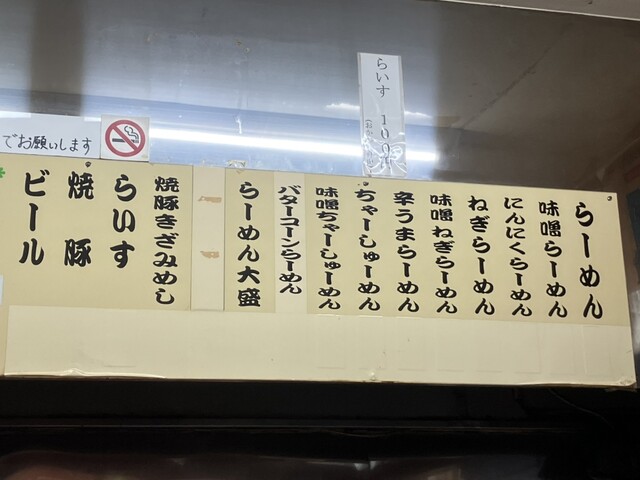 らいす 100円
でお願いします
らーめん
味噌らーめん
にんにくらーめん
ねぎらーめん
味噌ねぎらーめん
辛うまらーめん
ちゃーしゅーめん
味噌ちゃーしゅーめん
バターコーンらーめん
らーめん大盛
焼豚きざみめし
らいす
焼豚
ビール